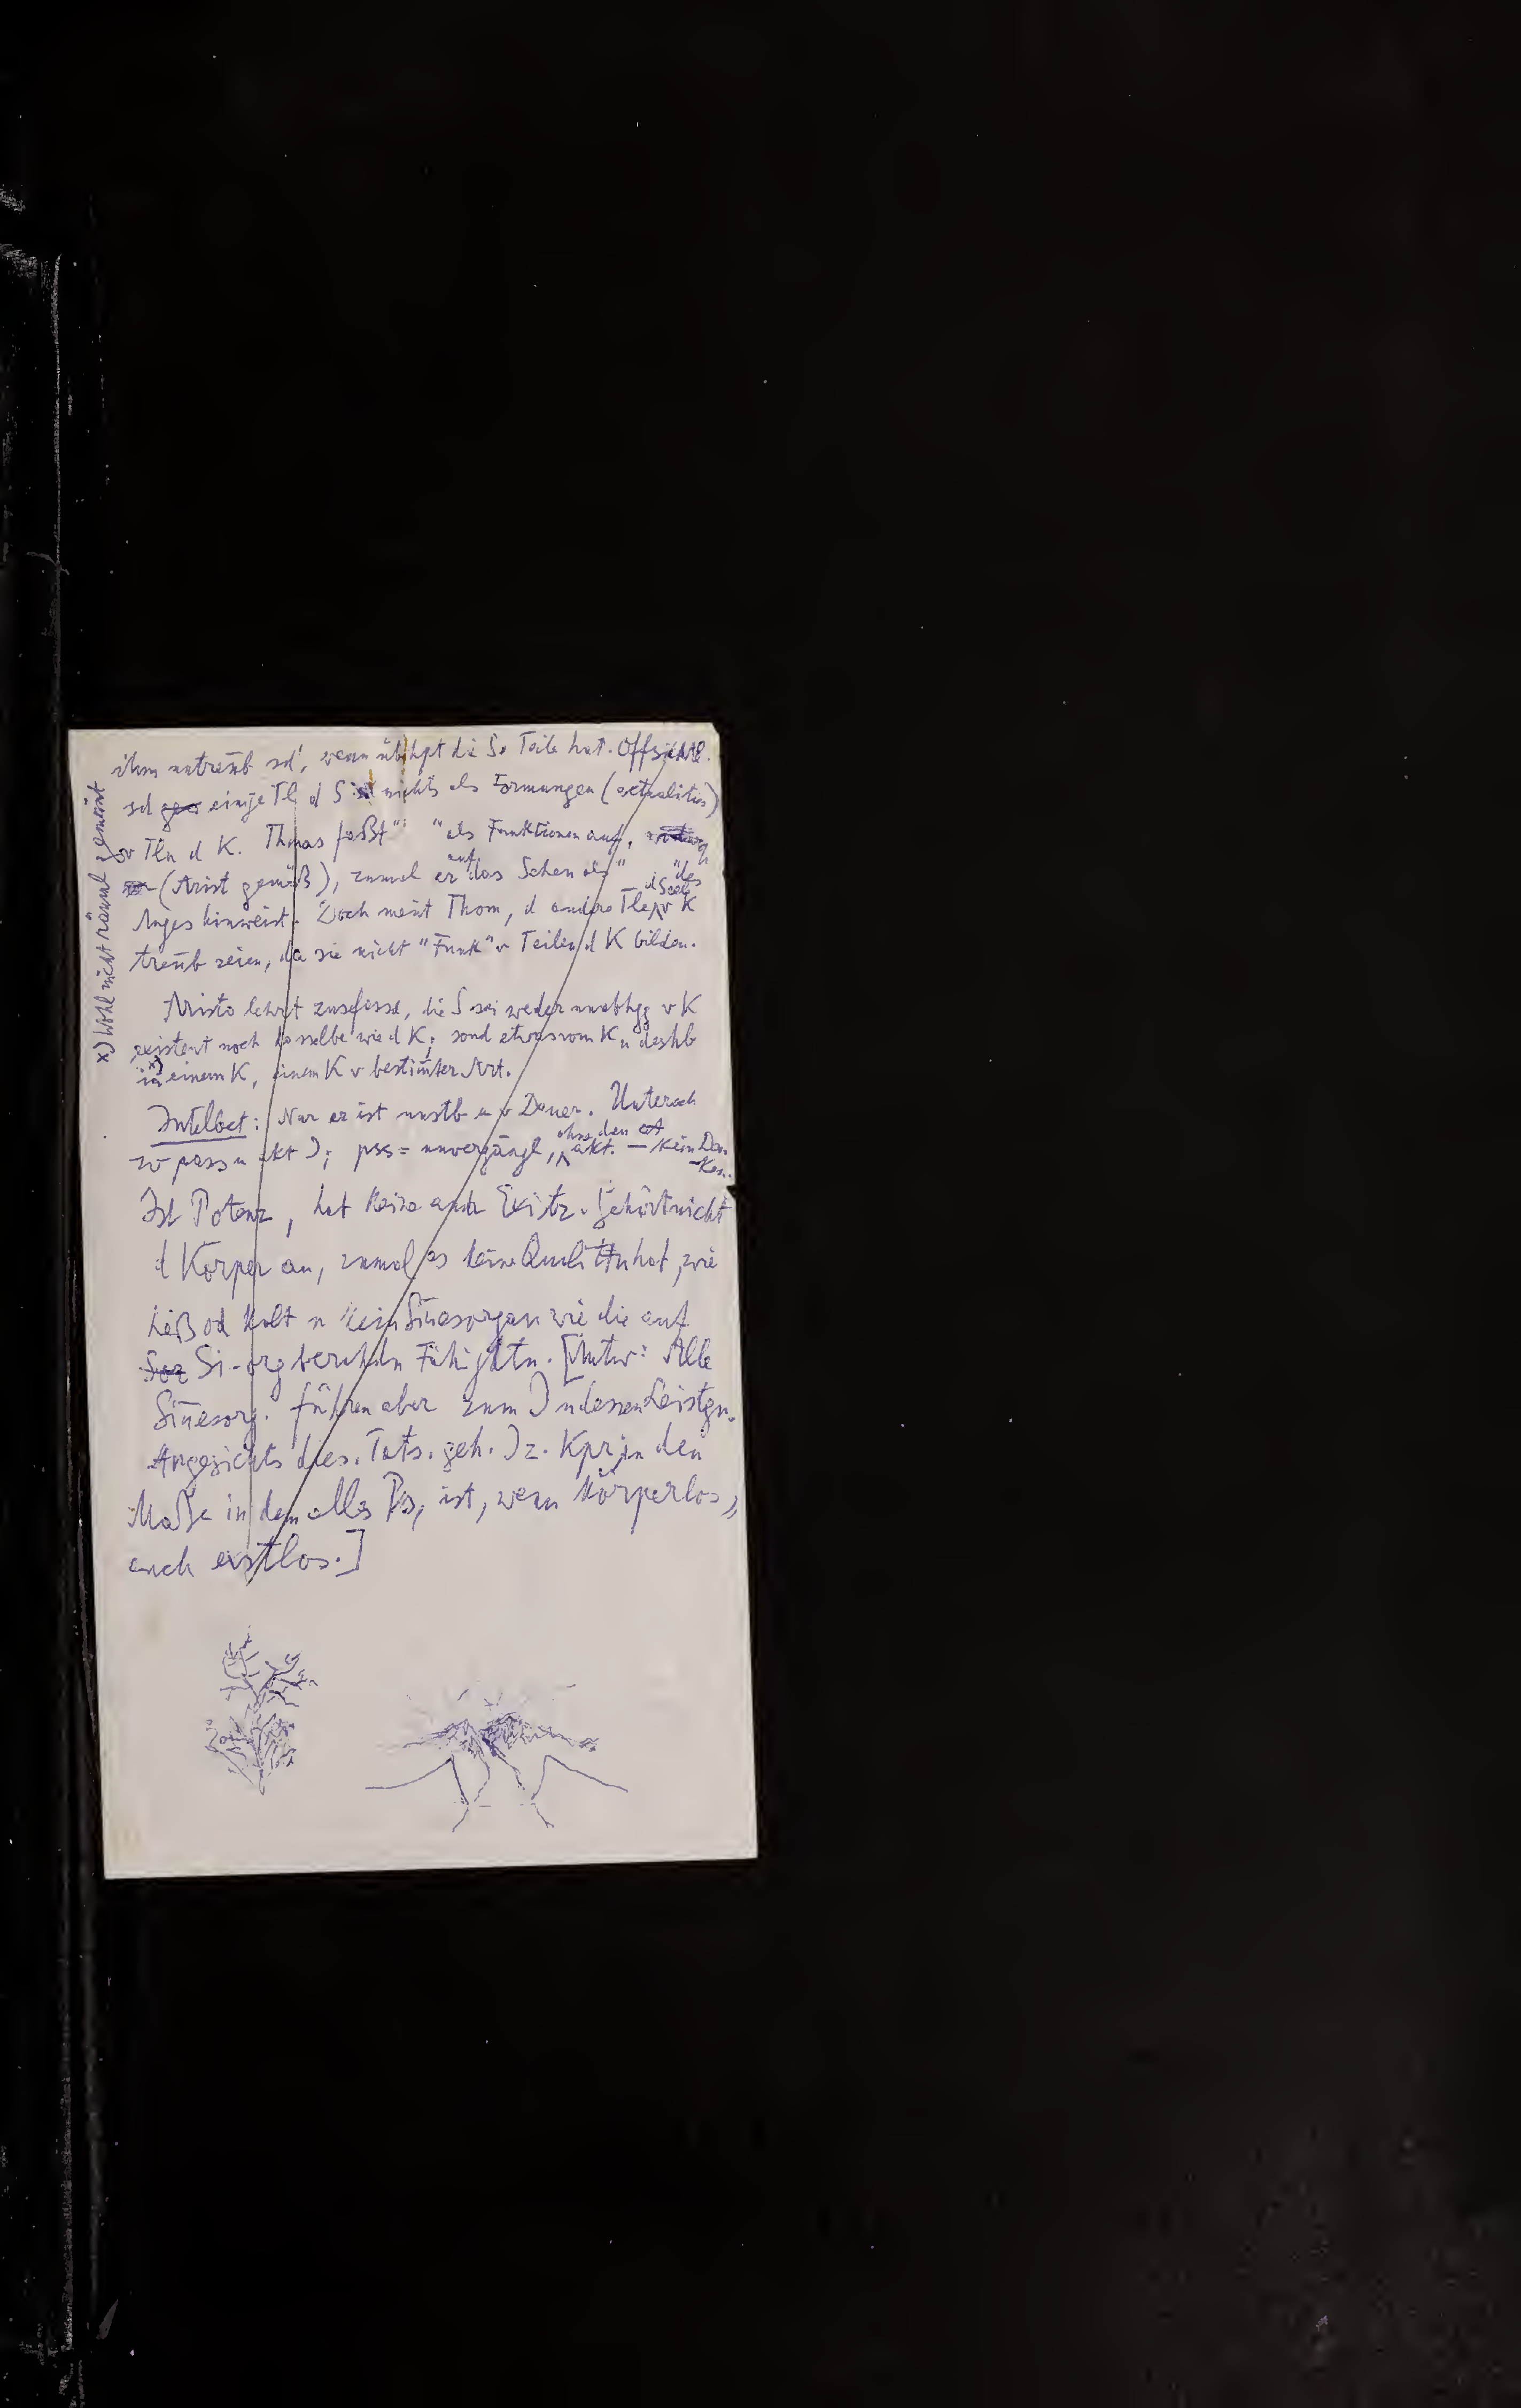 ihm untrenb sd', wenn übhpt die Se Teile hat. Offsichtl.
sd einige Tl d S nichts als Formungen (actualities)
v Tln d K. Thmas faßt " " als Funktionen auf,
(Arist gemäß), zumal er auf das Sehen als " " des
Auges hinweist. Doch meint Thom, d andre Tle d Seele v K
trenb seien, da sie nicht "Funk" v Teilen d K bilden.
Aristo lehrt zusfassd, die S sei weder unabhgg v K
existent noch dasselbe wie d K; sond etwas vom K u deshb
in x) einem K, einem K v bestimter Art.
Intellect: Nur er ist unstb u v Dauer. Untersch
zw pass u akt I; pss = unvergängl, ohne den akt. — kein Den-
ken.
Ist Potenz, hat keine andr Existz. Gehört nicht
d Körper an, zumal es keine Qualittn hat, wie
heiß od kalt n kein Sinesorgan wie die auf
Si-org beruhdn Fähigktn. [Antw: Alle
Sinesorg. führen aber zum I u dessen Leistgn.
Angesichts dies. Tats. geh. I z. Kpr, in den
Maße in dem alles Ps, ist, wenn körperlos,
auch exstlos.]
x) Wohl nicht räuml gemeint